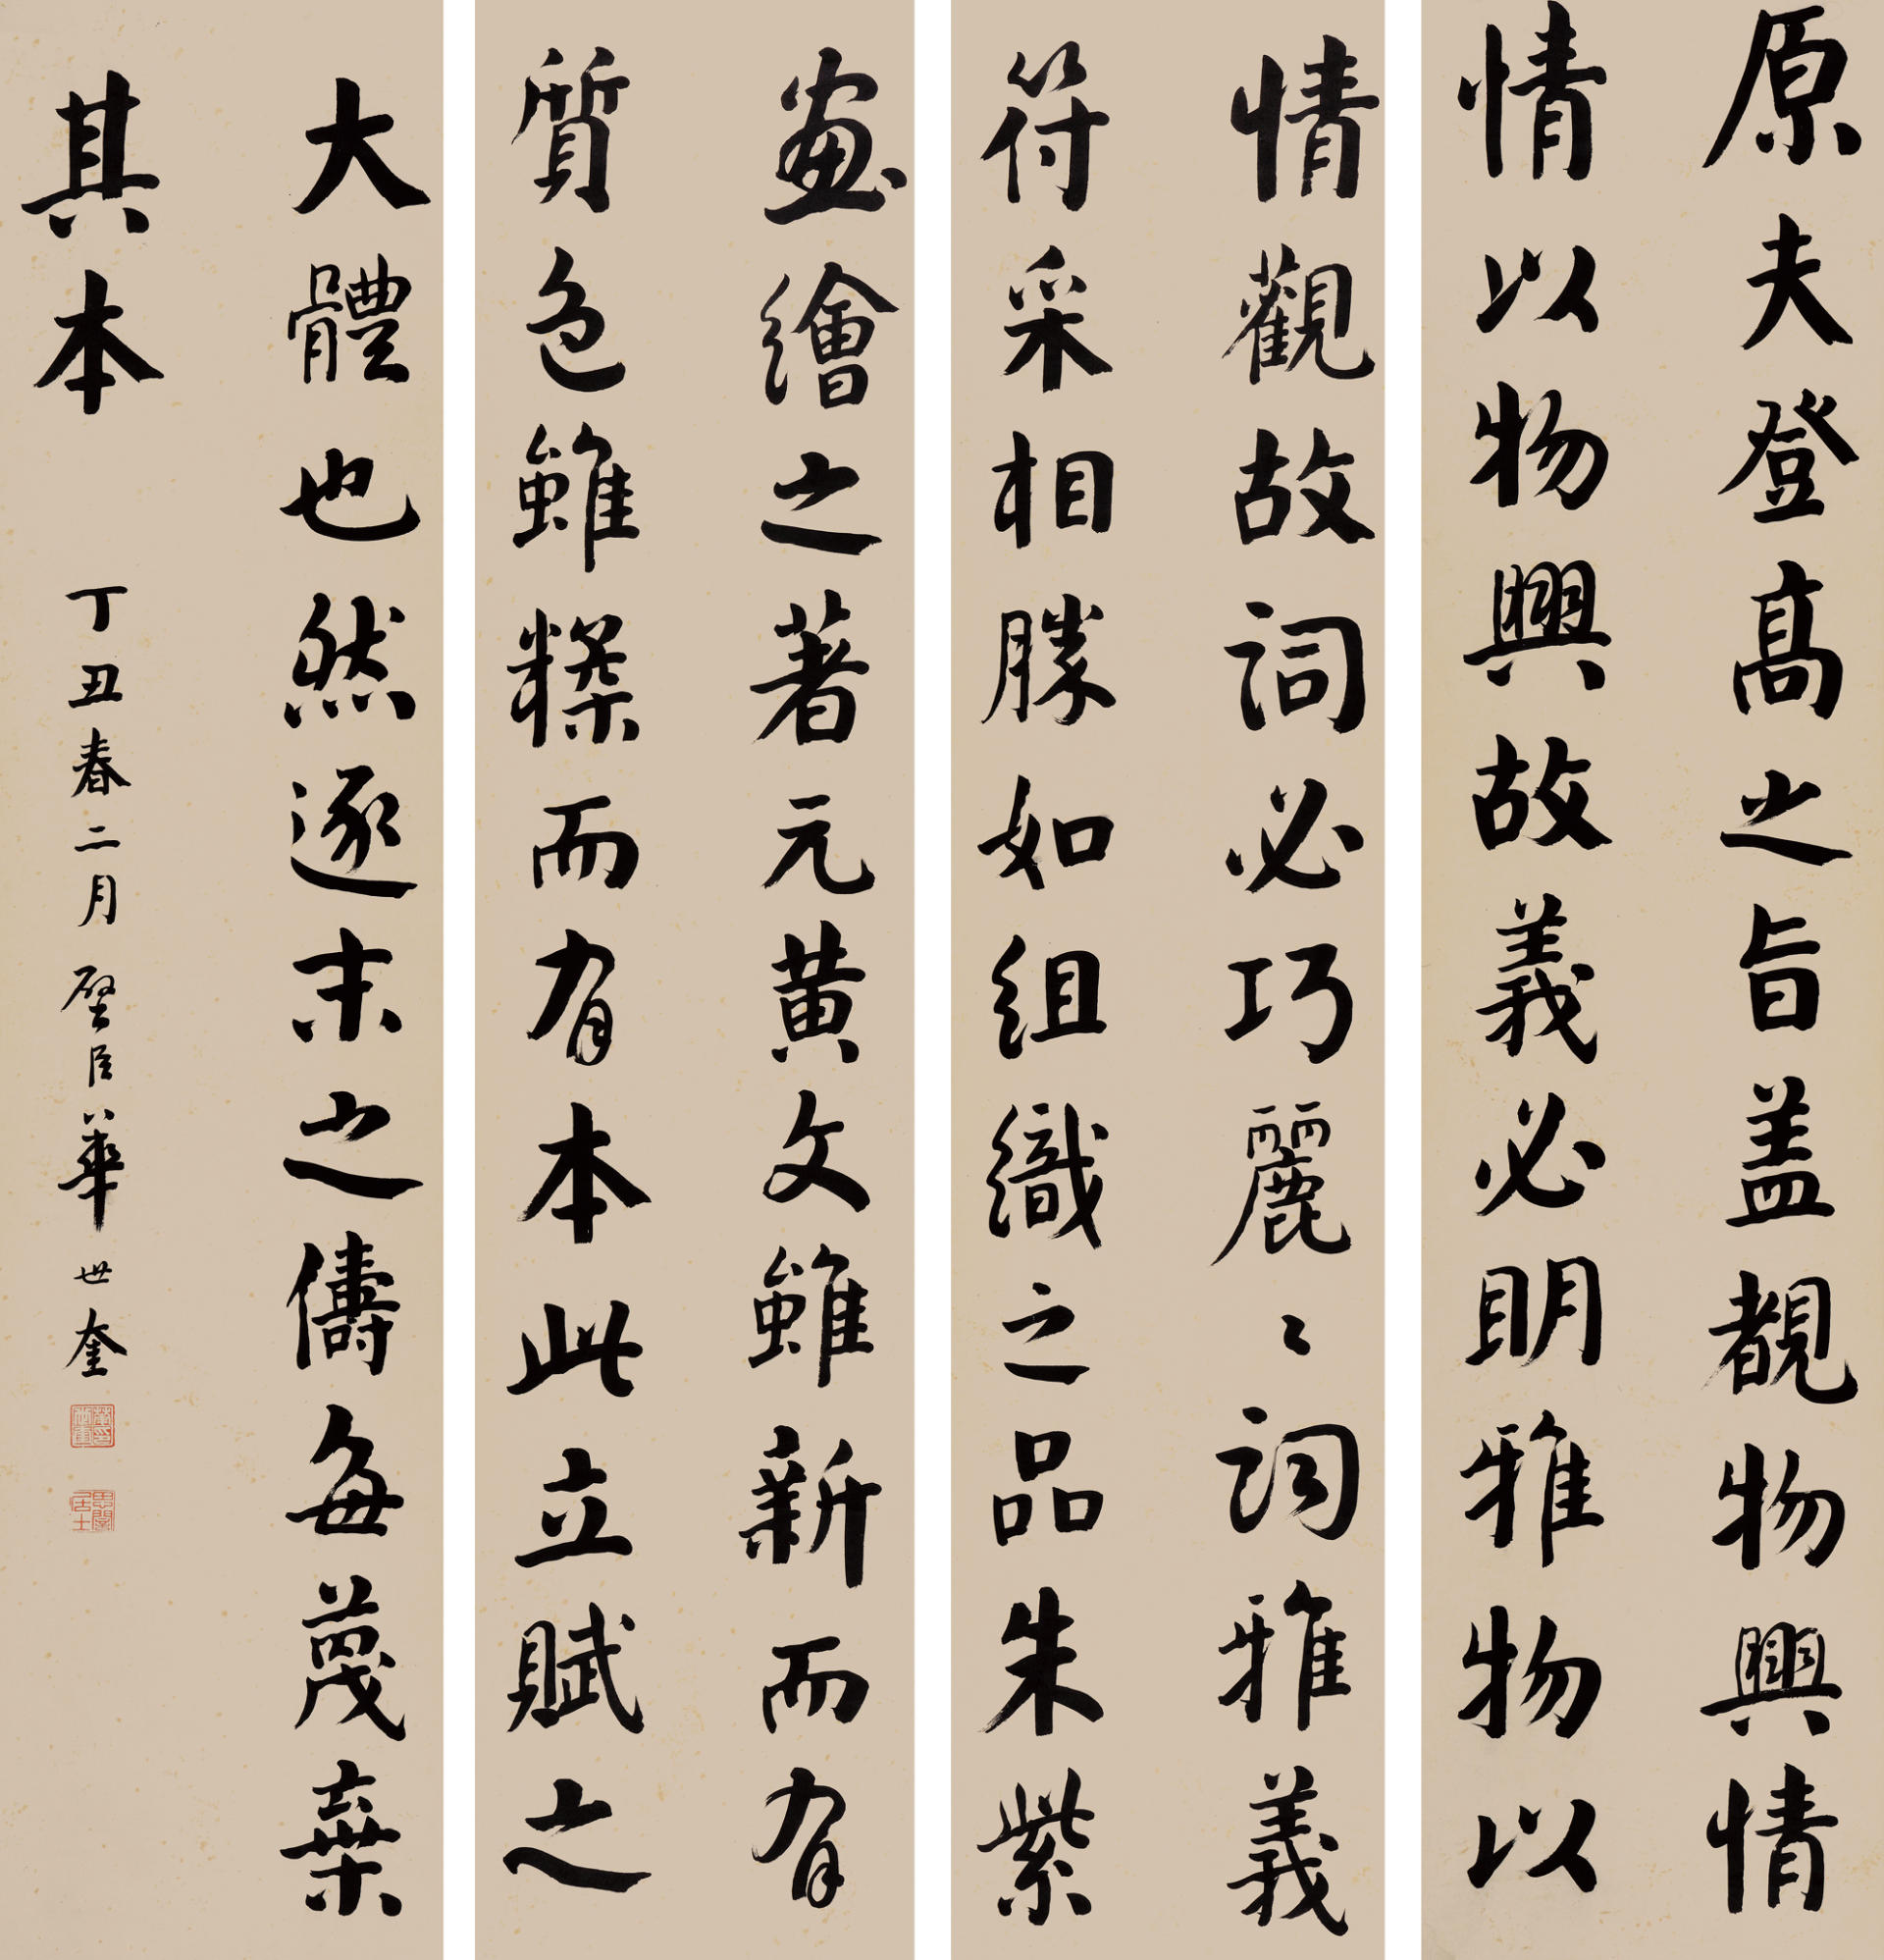 原夫登高之旨蓋覩物興情
情以物興故義必明雅物以
情觀故詞必巧麗〻詞雅義
符采相勝如組織之品朱紫
畫繪之著元黃文雖新而有
質色雖糅而有本此立賦之
大體也然逐末之儔每蔑棄
其本
丁丑春二月 璧臣華世奎
思闇居士